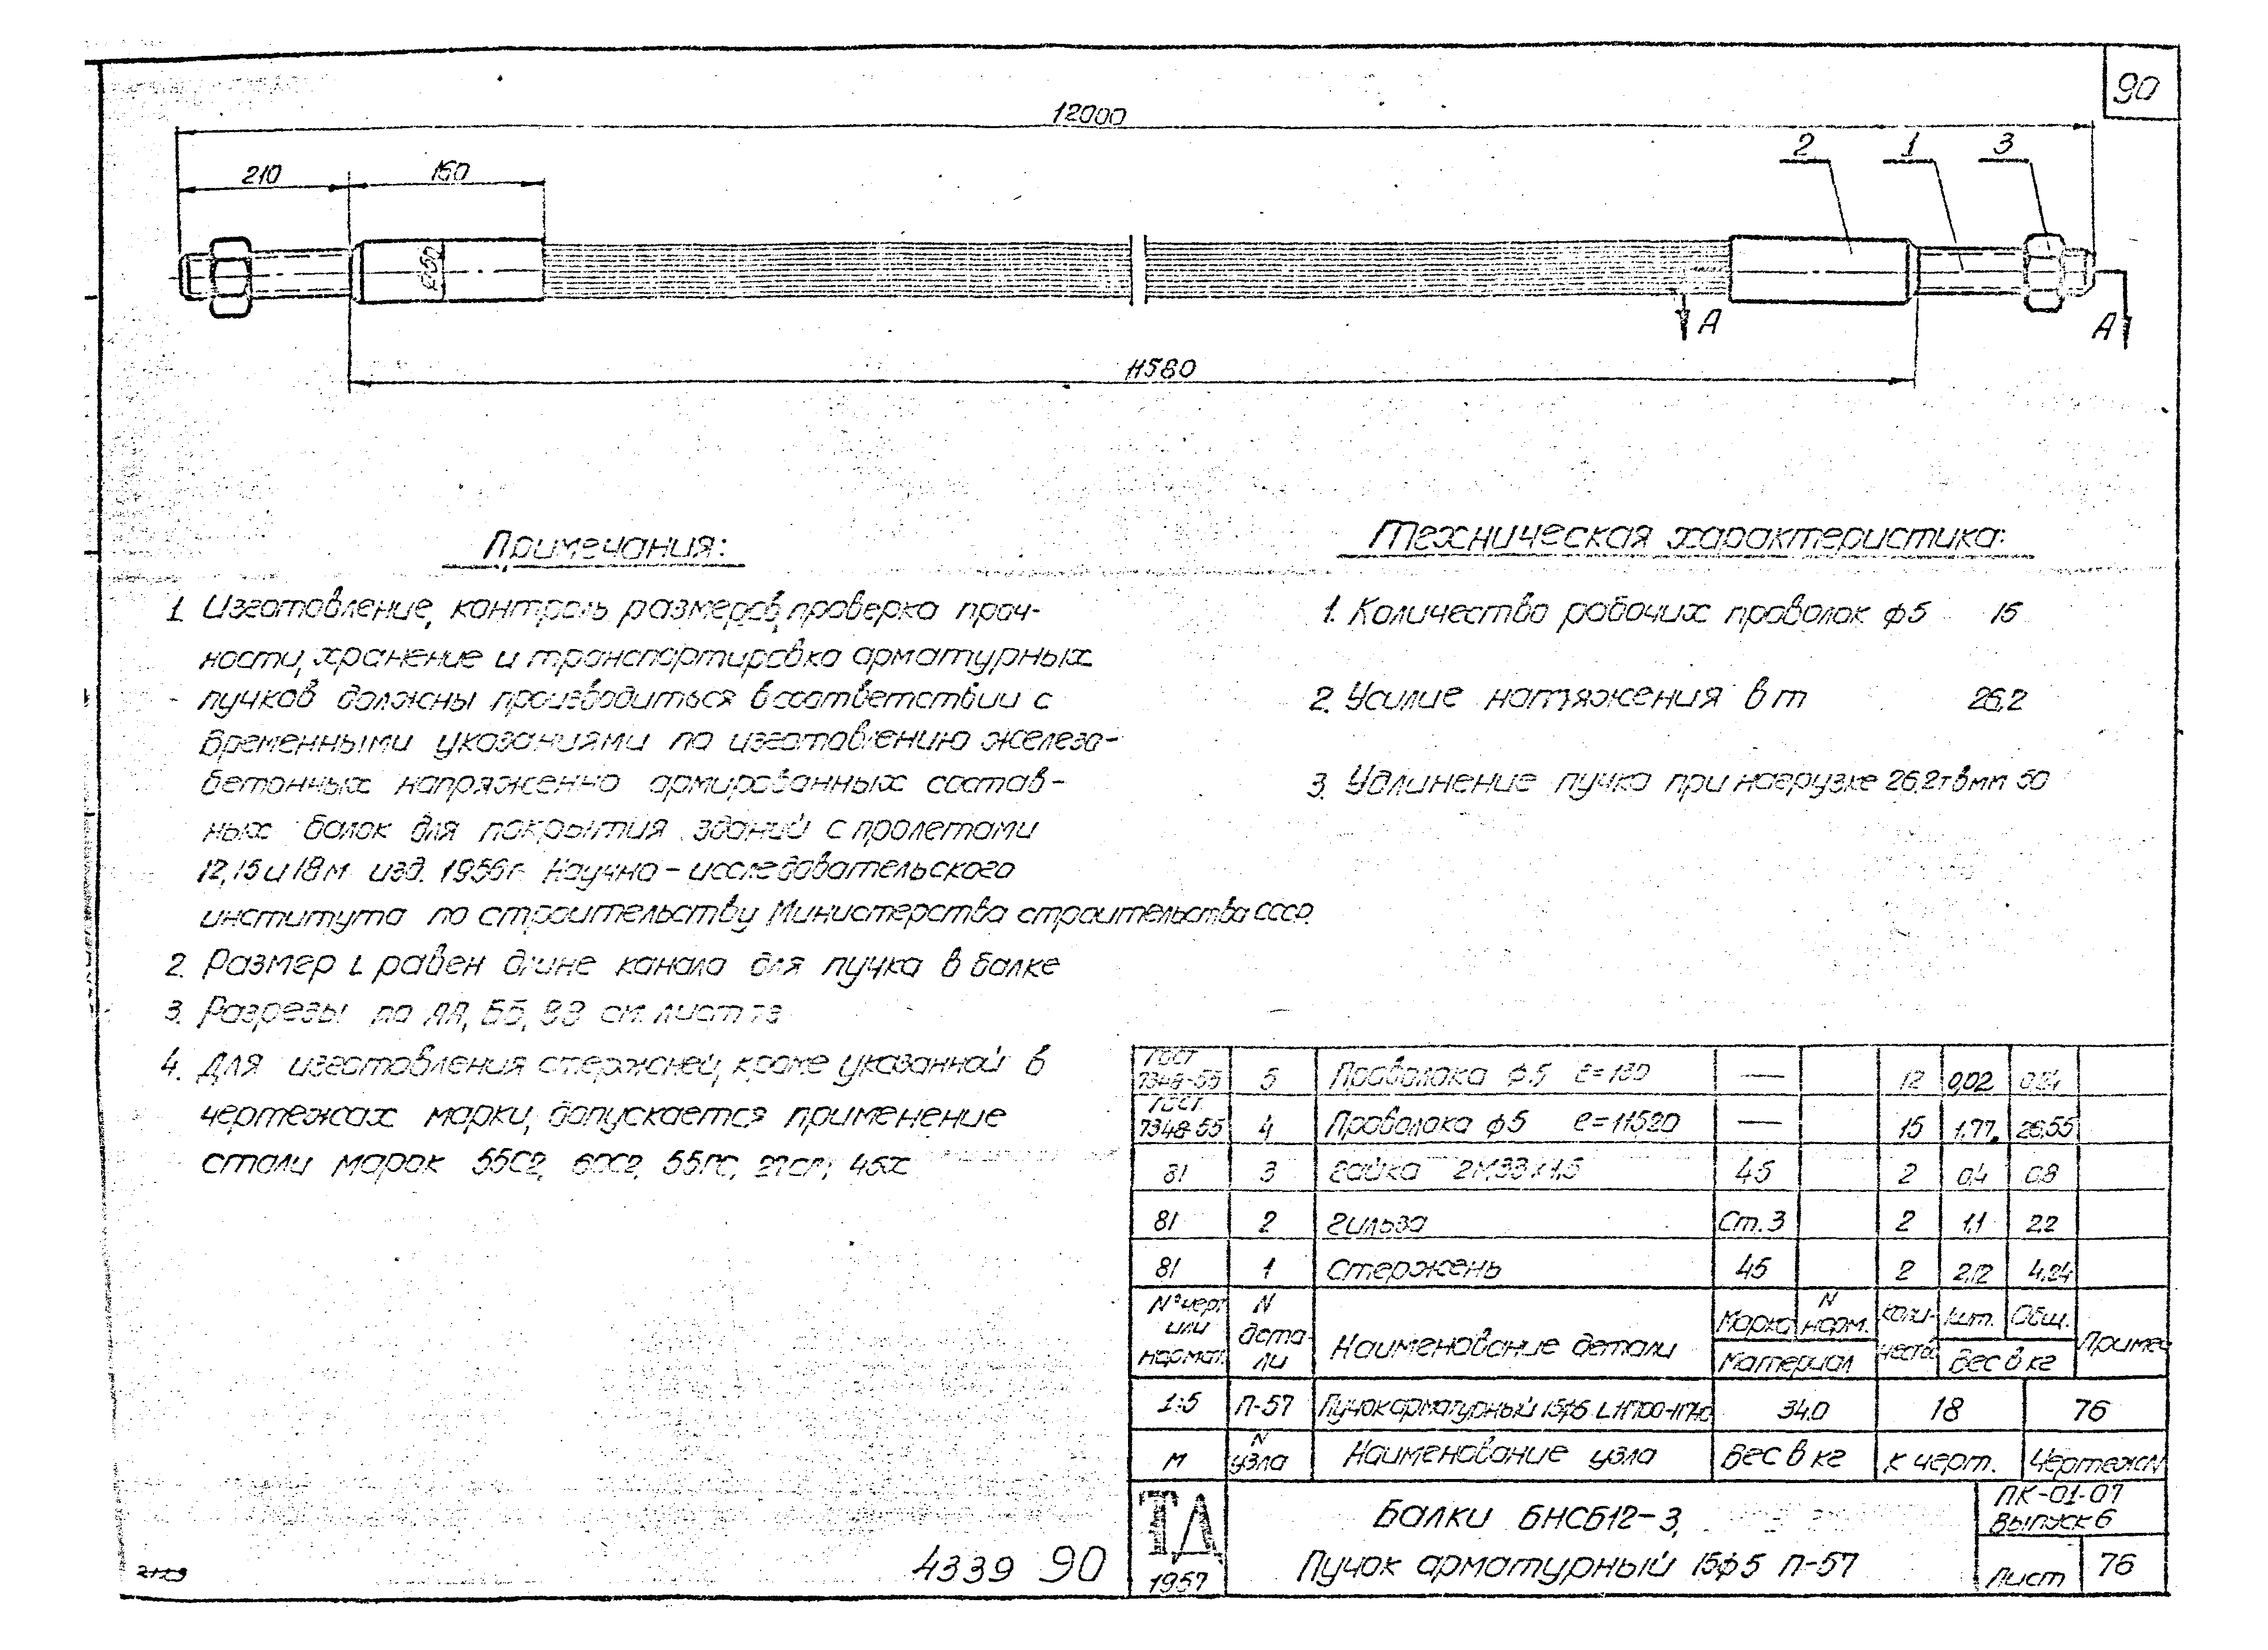 90
12000
210
160
2
1
3
А
А
11580
Примечания:
1. Изготовление, контроль размеров, проверка проч-
ности, хранение и транспортировка арматурных
пучков должны производиться в соответствии с
временными указаниями по изготовлению железо-
бетонных напряженно армированных состав-
ных балок для покрытия зданий с пролетами
12, 15 и 18м изд. 1956г. Научно-исследовательского
института по строительству Министерства строительства СССР.
2. Размер L равен длине канала для пучка в балке
3. Разрезы по АА, ББ, ВВ см. лист
4. Для изготовления стержней, кроме указанной в
чертежах марки, допускается применение
стали марок 55С2, 60С2, 55ГС, 27СГ, 45Х
Техническая характеристика:
1. Количество рабочих проволок ф5 15
2. Усилие натяжения в т 26,2
3. Удлинение пучка при нагрузке 26,2т в мм 50
ГОСТ 7348-55 5 Проволока ф5 ℓ=130 — 12 0,02 0,24
ГОСТ 7348-55 4 Проволока ф5 ℓ=11520 — 15 1,77 26,55
81 3 гайка 2М33х1,5 45 2 0,4 0,8
81 2 гильза Ст.3 2 1,1 2,2
81 1 Стержень 45 2 2,12 4,24
N° черт. или нормат. N детали Наименование детали Марка N норм. Материал Количество Шт. Общ. Вес в кг Примеч
1:5 П-57 Пучок арматурный 15ф5 34.0 18 76
М N узла Наименование узла Вес в кг К черт. Чертеж N
ТД
1957
Балки БНСБ12-3,
Пучок арматурный 15ф5 П-57
ПК-01-07
Выпуск 6
Лист 76
4339 90